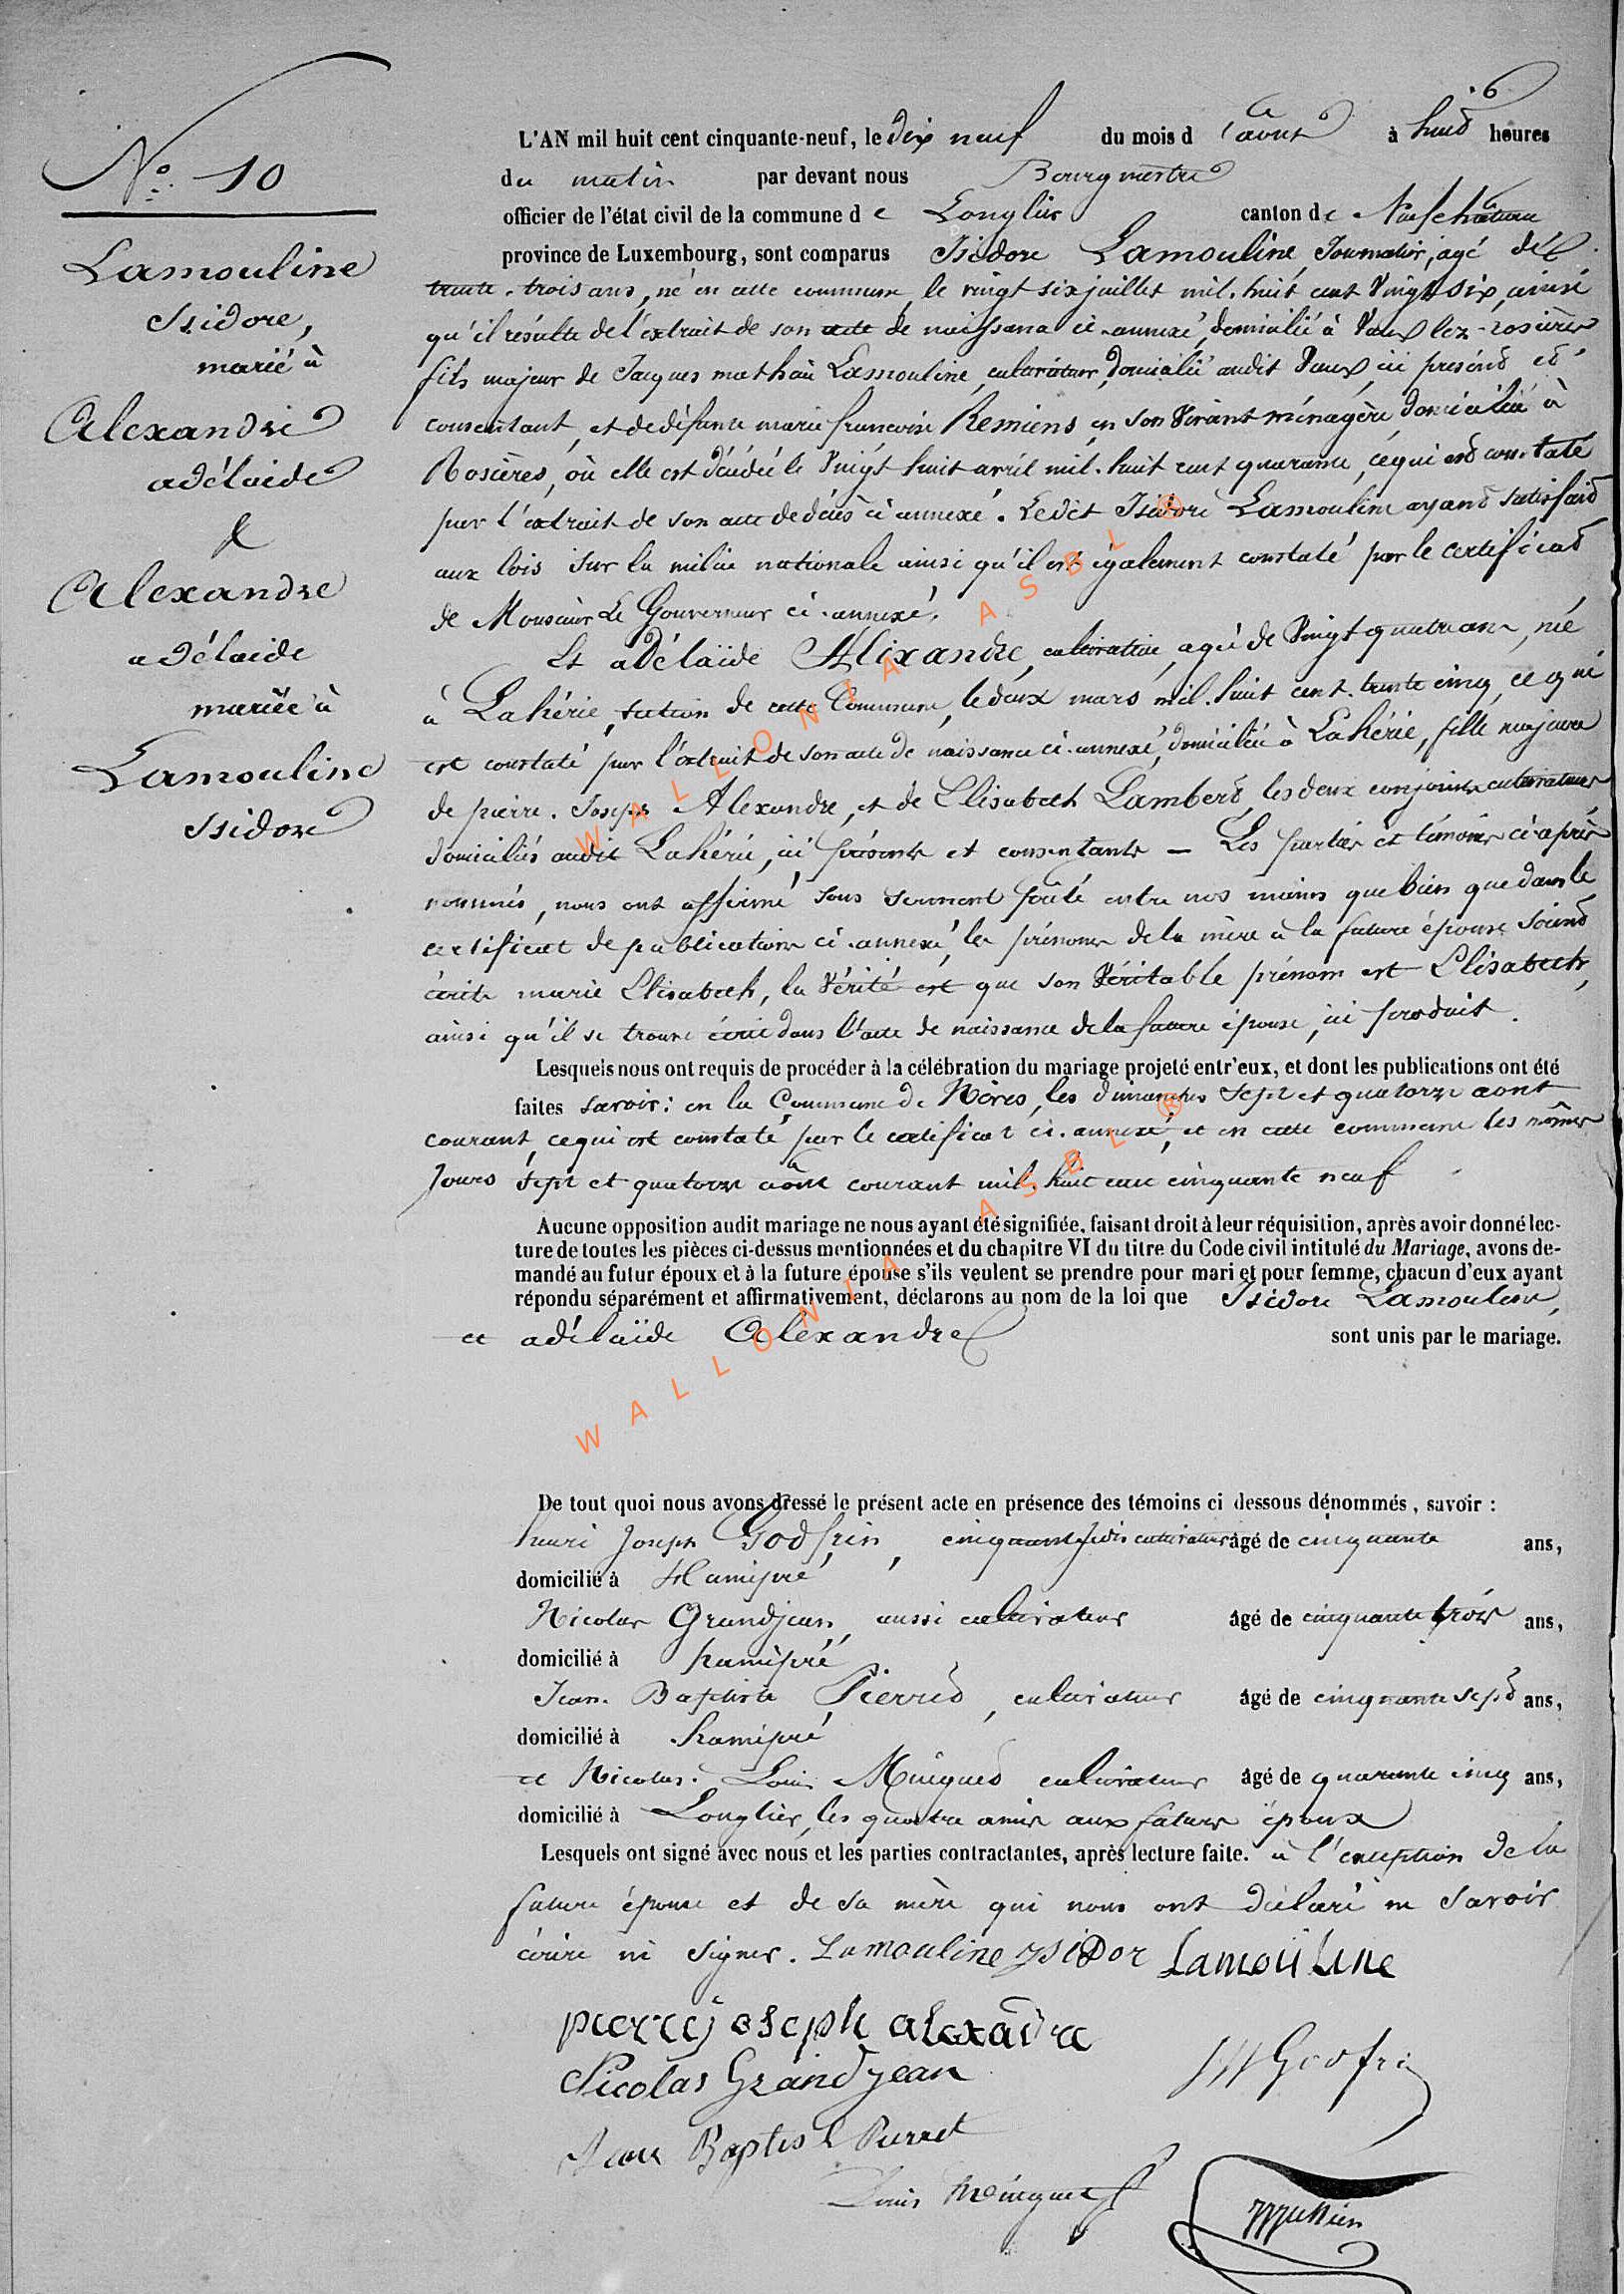 6
L'AN mil huit cent cinquante-neuf, le dix neuf du mois d'aout à huit heures
du matin par devant nous Bourgmestre
officier de l'état civil de la commune de Longlier canton de Neufchateau
province de Luxembourg, sont comparus Isidore Lamouline, Journalier, agé de
trente-trois ans, né en cette commune le vingt six juillet mil huit cent vingt six, ainsi
qu'il résulte de l'extrait de son acte de naissance ci-annexé, domicilié à Vaux lez-rosières
fils majeur de Jacques mathieu Lamouline, cultivateur, domicilié audit Vaux, ici présent et
consentant, et de défunte marie françoise Remiens, en son vivant ménagère, domiciliée à
Rosières, où elle est décédée le vingt huit avril mil-huit cent quarante, ce qui est constaté
par l'extrait de son acte de décès ci annexé. Ledit Isidore Lamouline ayant satisfait
aux lois sur la milice nationale ainsi qu'il est également constaté par le certificat
de Monsieur Le Gouverneur ci-annexé.
Et adélaïde Alixandre, cultivatrice, agée de vingt quatre ans, née
à Lahérie, section de cette Commune, le deux mars mil-huit cent-trente cinq, ce qui
est constaté par l'extrait de son acte de naissance ci-annexé, domiciliée à Lahérie, fille majeure
de pierre-Joseph Alexandre, et de Elisabeth Lambert, les deux conjoints cultivateurs
domiciliés audit Lahérie, ici présents et consentants — Les parties et témoins ci-après
nommés, nous ont affirmé sous serment prêté entre nos mains que bien que dans le
certificat de publication ci-annexé, les prénoms de la mère à la future épouse soient
écrits marie Elisabeth, la vérité est que son véritable prénom est Elisabeth,
ainsi qu'il se trouve écrit dans l'acte de naissance de la future épouse, ici produit.
Lesquels nous ont requis de procéder à la célébration du mariage projeté entr'eux, et dont les publications ont été
faites savoir: en la Commune de Nives, les dimanches sept et quatorze aout
courant, ce qui est constaté par le certificat ci-annexé, et en cette commune les mêmes
Jours sept et quatorze août courant mil-huit cent cinquante neuf
Aucune opposition audit mariage ne nous ayant été signifiée, faisant droit à leur réquisition, après avoir donné lec-
ture de toutes les pièces ci-dessus mentionnées et du chapitre VI du titre du Code civil intitulé du Mariage, avons de-
mandé au futur époux et à la future épouse s'ils veulent se prendre pour mari et pour femme, chacun d'eux ayant
répondu séparément et affirmativement, déclarons au nom de la loi que Isidore Lamouline,
et adélaïde Alexandre sont unis par le mariage.
De tout quoi nous avons dressé le présent acte en présence des témoins ci dessous dénommés, savoir :
henri Joseph Godfrin, cultivateur âgé de cinquante ans,
domicilié à Hamipré
Nicolas Grandjean, aussi cultivateur âgé de cinquante trois ans,
domicilié à hamipré
Jean-Baptiste Pierret, cultivateur âgé de cinquante sept ans,
domicilié à hamipré
et Nicolas-Louis Minguet cultivateur âgé de quarante cinq ans,
domicilié à Longlier, les quatre amis aux futurs époux
Lesquels ont signé avec nous et les parties contractantes, après lecture faite. à l'exception de la
future épouse et de sa mère qui nous ont déclaré ne savoir
écrire ni signer. Lamouline ysidor Lamouline
pierre joseph alexadre
Nicolas Grandjean
HJGodfrin
Jean Baptist Pierret
Louis Minguet
No. 10
Lamouline
Isidore,
marié à
Alexandre
adélaide
&
Alexandre
adélaide
mariée à
Lamouline
Isidore
WALLONIA ASBL ®
WALLONIA ASBL ®